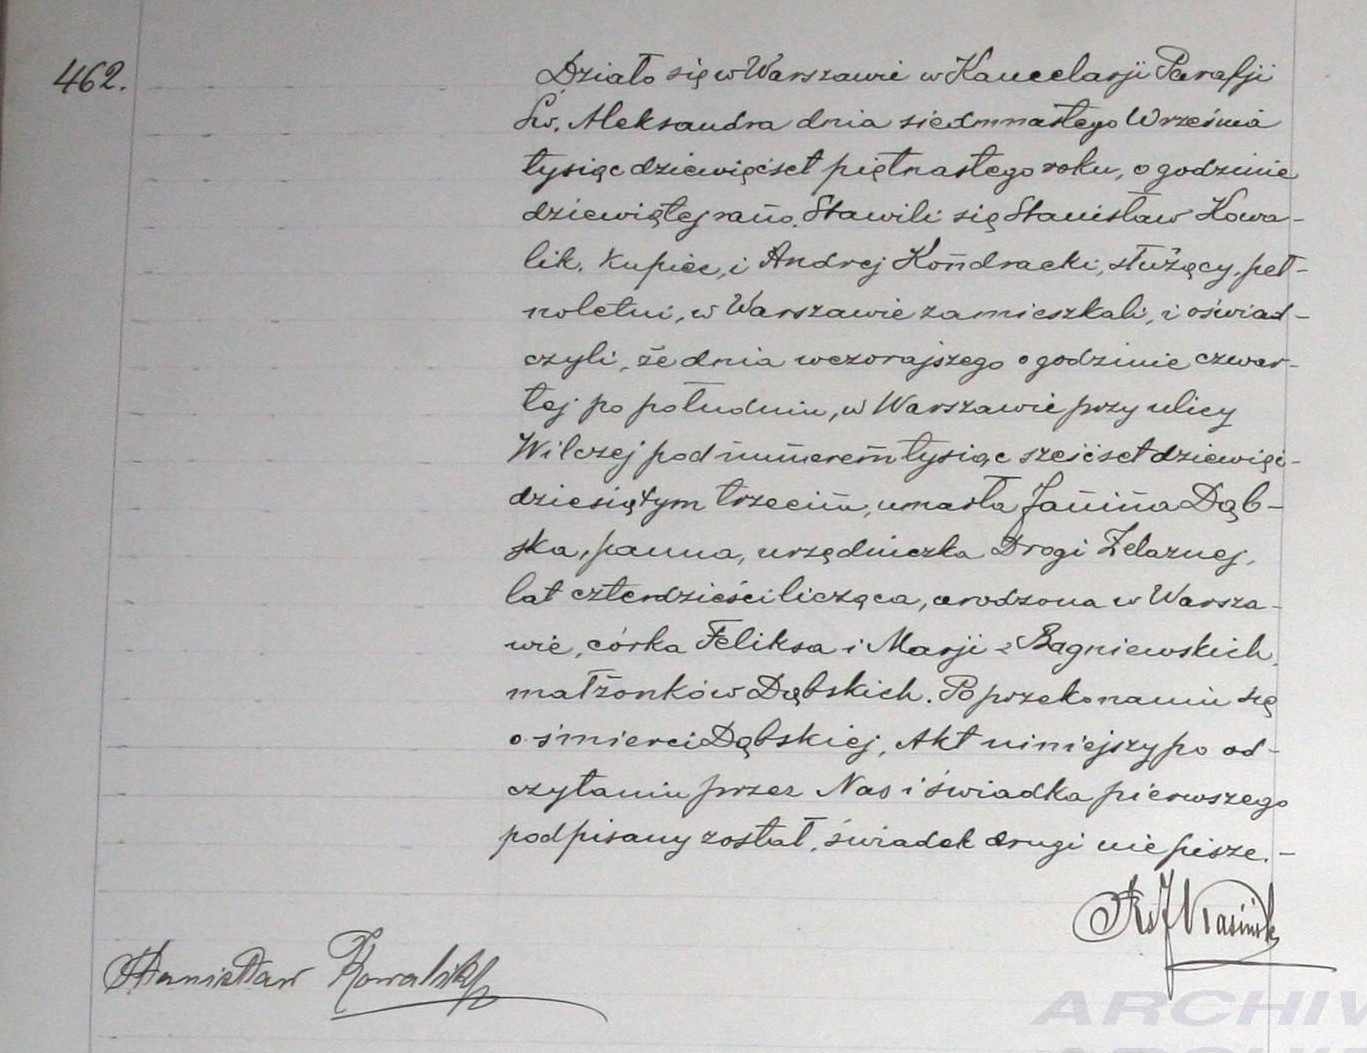 462.
Działo się w Warszawie w Kancelarji Parafji
Św. Aleksandra dnia siedmnastego Września
tysiąc dziewięćset piętnastego roku, o godzinie
dziewiątej rano. Stawili się Stanisław Kowa-
lik, kupiec, i Andrej Kondracki, służący, peł-
noletni, w Warszawie zamieszkali, i oświad-
czyli, że dnia wczorajszego o godzinie czwar-
tej po południu, w Warszawie przy ulicy
Wilczej pod numerem tysiąc sześćset dziewięć-
dziesiątym trzecim, umarła Janina Dąb-
ska, panna, urzędniczka Drogi Żelaznej,
lat czterdzieści licząca, urodzona w Warsza-
wie, córka Feliksa i Marji z Bagniewskich,
małżonków Dąbskich. Po przekonaniu się
o śmierci Dąbskiej, Akt niniejszy po od-
czytaniu przez Nas i świadka pierwszego
podpisany został, świadek drugi nie pisze.-
Stanisław Kowalik
ARCHIW